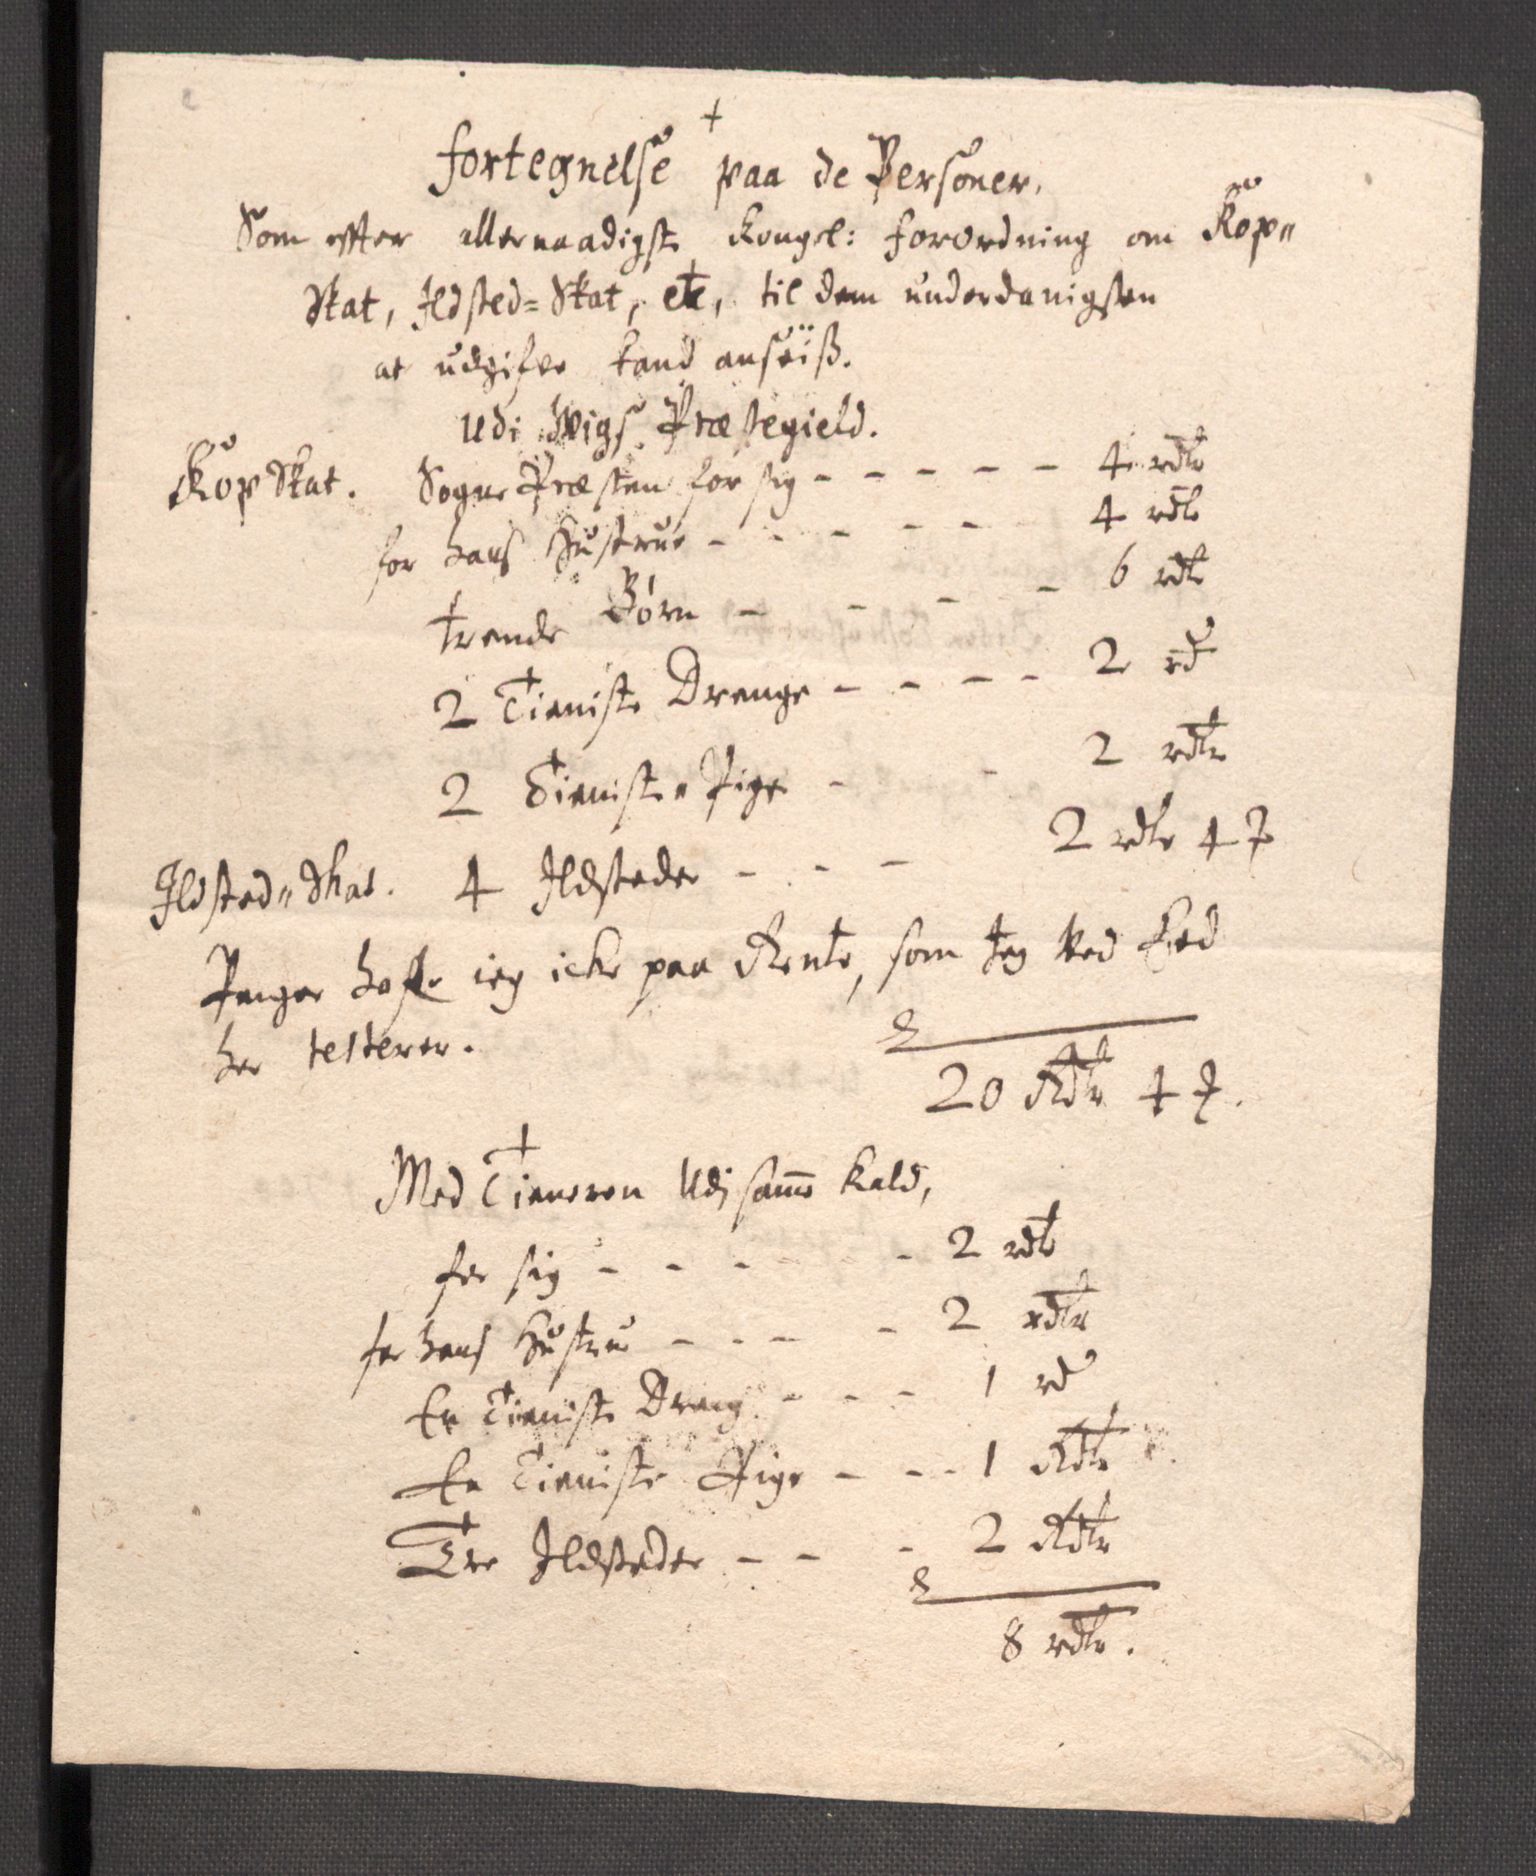 fortegnelse paa de Personer,
Som effter allernaadigste Kongel: forordning om Kop„
Skat, Ildsted=Skat, etc, til dem underdanigsten
at udgifve kand ansëiß.
Udi Wigs Præstegield.
Kop Skat. Sogne Præsten for sig - - - - - 4 rdlr
for hans Hustrue - - - - - - 4 rdlr
trende Børn - - - - 6 rdlr
2 Tieniste Drenge - - - - 2 rd
2 Tieniste„Pige - - 2 rdlr
Ildsted„Skat. 4 Ildsteder - - - 2 rdlr 4
Penger hafr ieg icke paa Rente, som Jeg Ved Eed
her testerer.
20 Rdlr 4
Med Tieneren Udj samme Kald,
for sig - - - - - 2 rdlr
for hans Hustrue - - - - 2 rdlr
En Tieniste Dreng - - - 1 rd
En Tieniste Pige - - - 1 Rdlr
Tre Ildsteder - - - 2 Rdlr
8 rdlr.